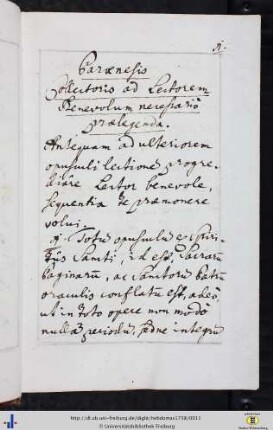 A.
Paraenesis
Collectoris ad Lectorem
Benevolum necessariò
praelegenda.
Antequam ad ulteriorem
opusculi lectionē progre-
diare Lector benevole,
sequentia te praemonere
volui.
1º Totū opusculū è Spiri-
tûs Sancti, id est, Sacrarū
Paginarū, ac Sanctorū Patrū
oraculis conflatū est, adeò,
ut in toto opere non modò
nulla periodus, sed ne integra
http://dl.ub.uni-freiburg.de/diglit/hebdomas1738/0011
© Universitätsbibliothek Freiburg